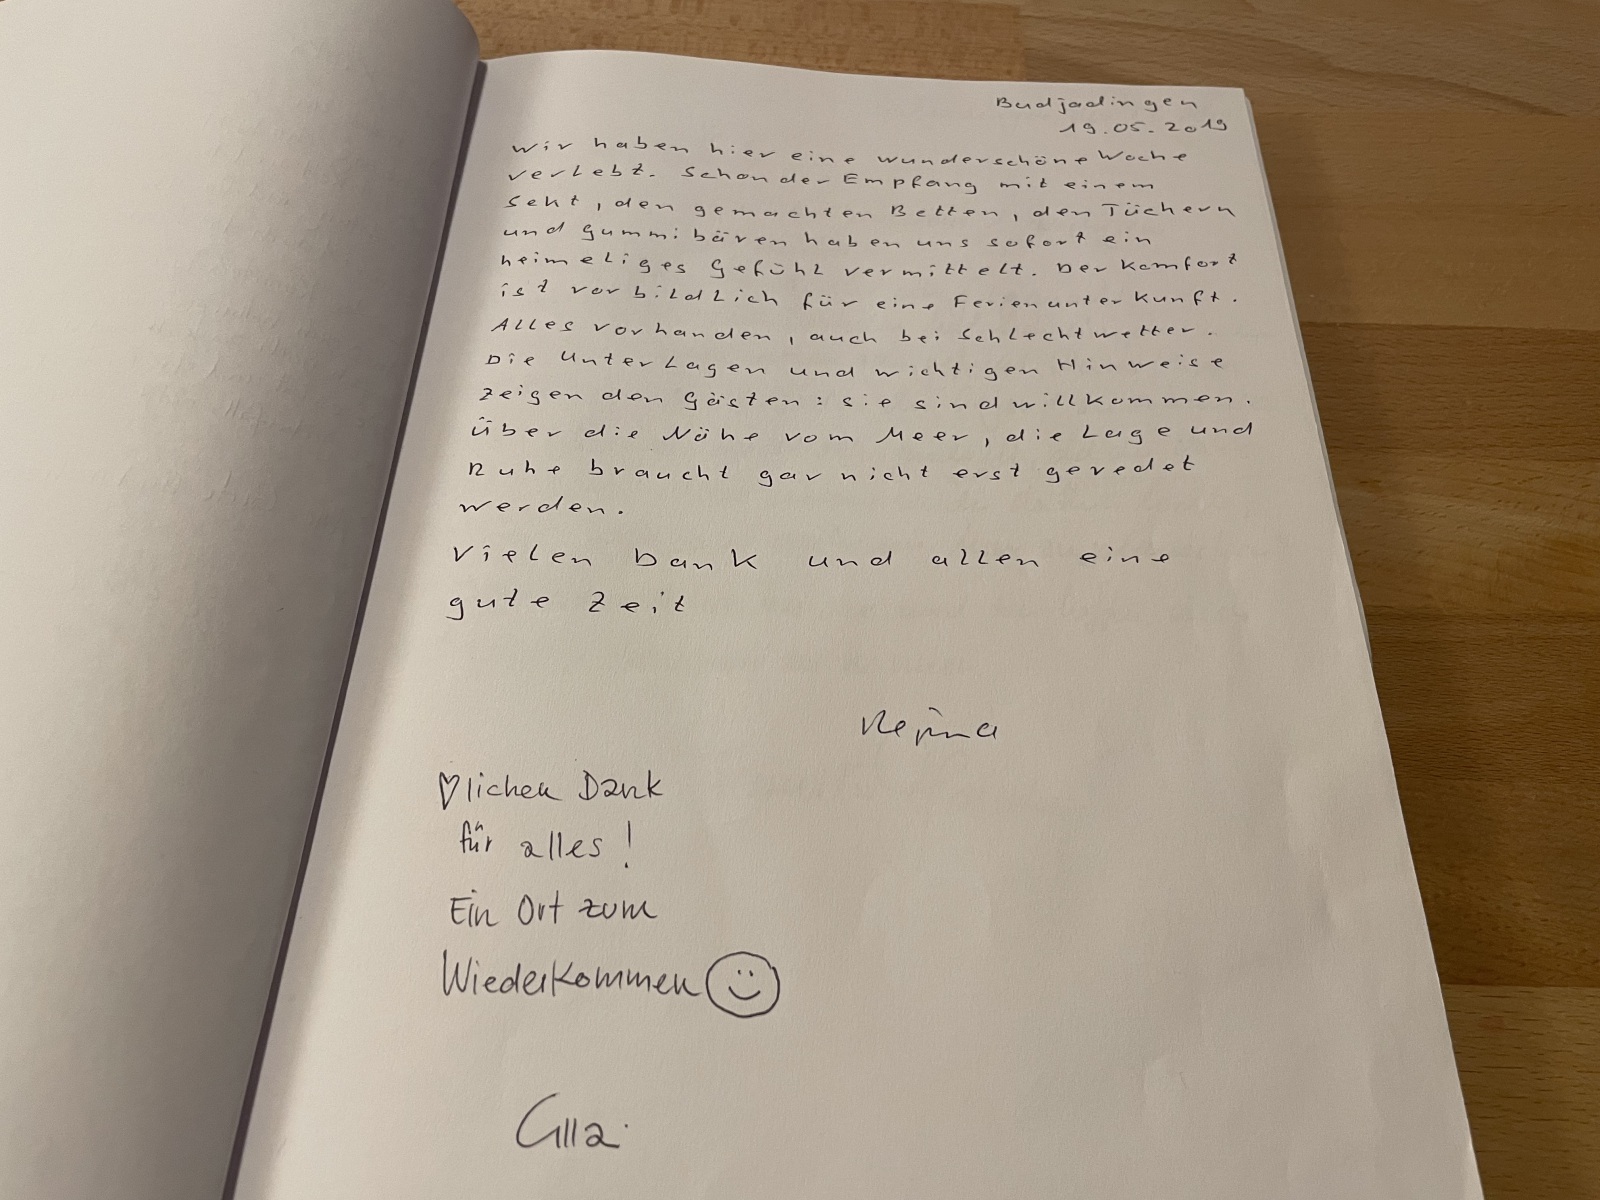 Budjadingen
19.05.2019
Wir haben hier eine wunderschöne Woche
verlebt. Schon der Empfang mit einem
Sekt, den gemachten Betten, den Tüchern
und Gummibären haben uns sofort ein
heimeliges Gefühl vermittelt. Der Komfort
ist vorbildlich für eine Ferienunterkunft.
Alles vorhanden, auch bei Schlechtwetter.
Die Unterlagen und wichtigen Hinweise
zeigen den Gästen: sie sind willkommen.
Über die Nähe vom Meer, die Lage und
Ruhe braucht gar nicht erst geredet
werden.
Vielen Dank und allen eine
gute Zeit
Regina
♡lichen Dank
für alles!
Ein Ort zum
Wiederkommen ☺